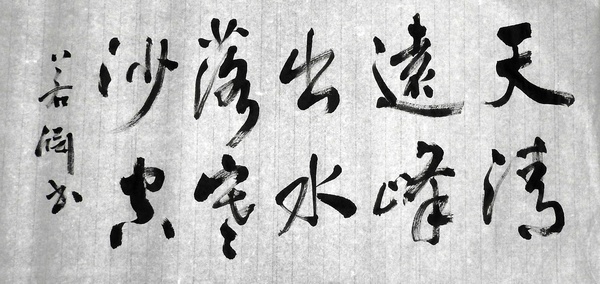 天清
遠峰
出水
落寒
沙空
若书